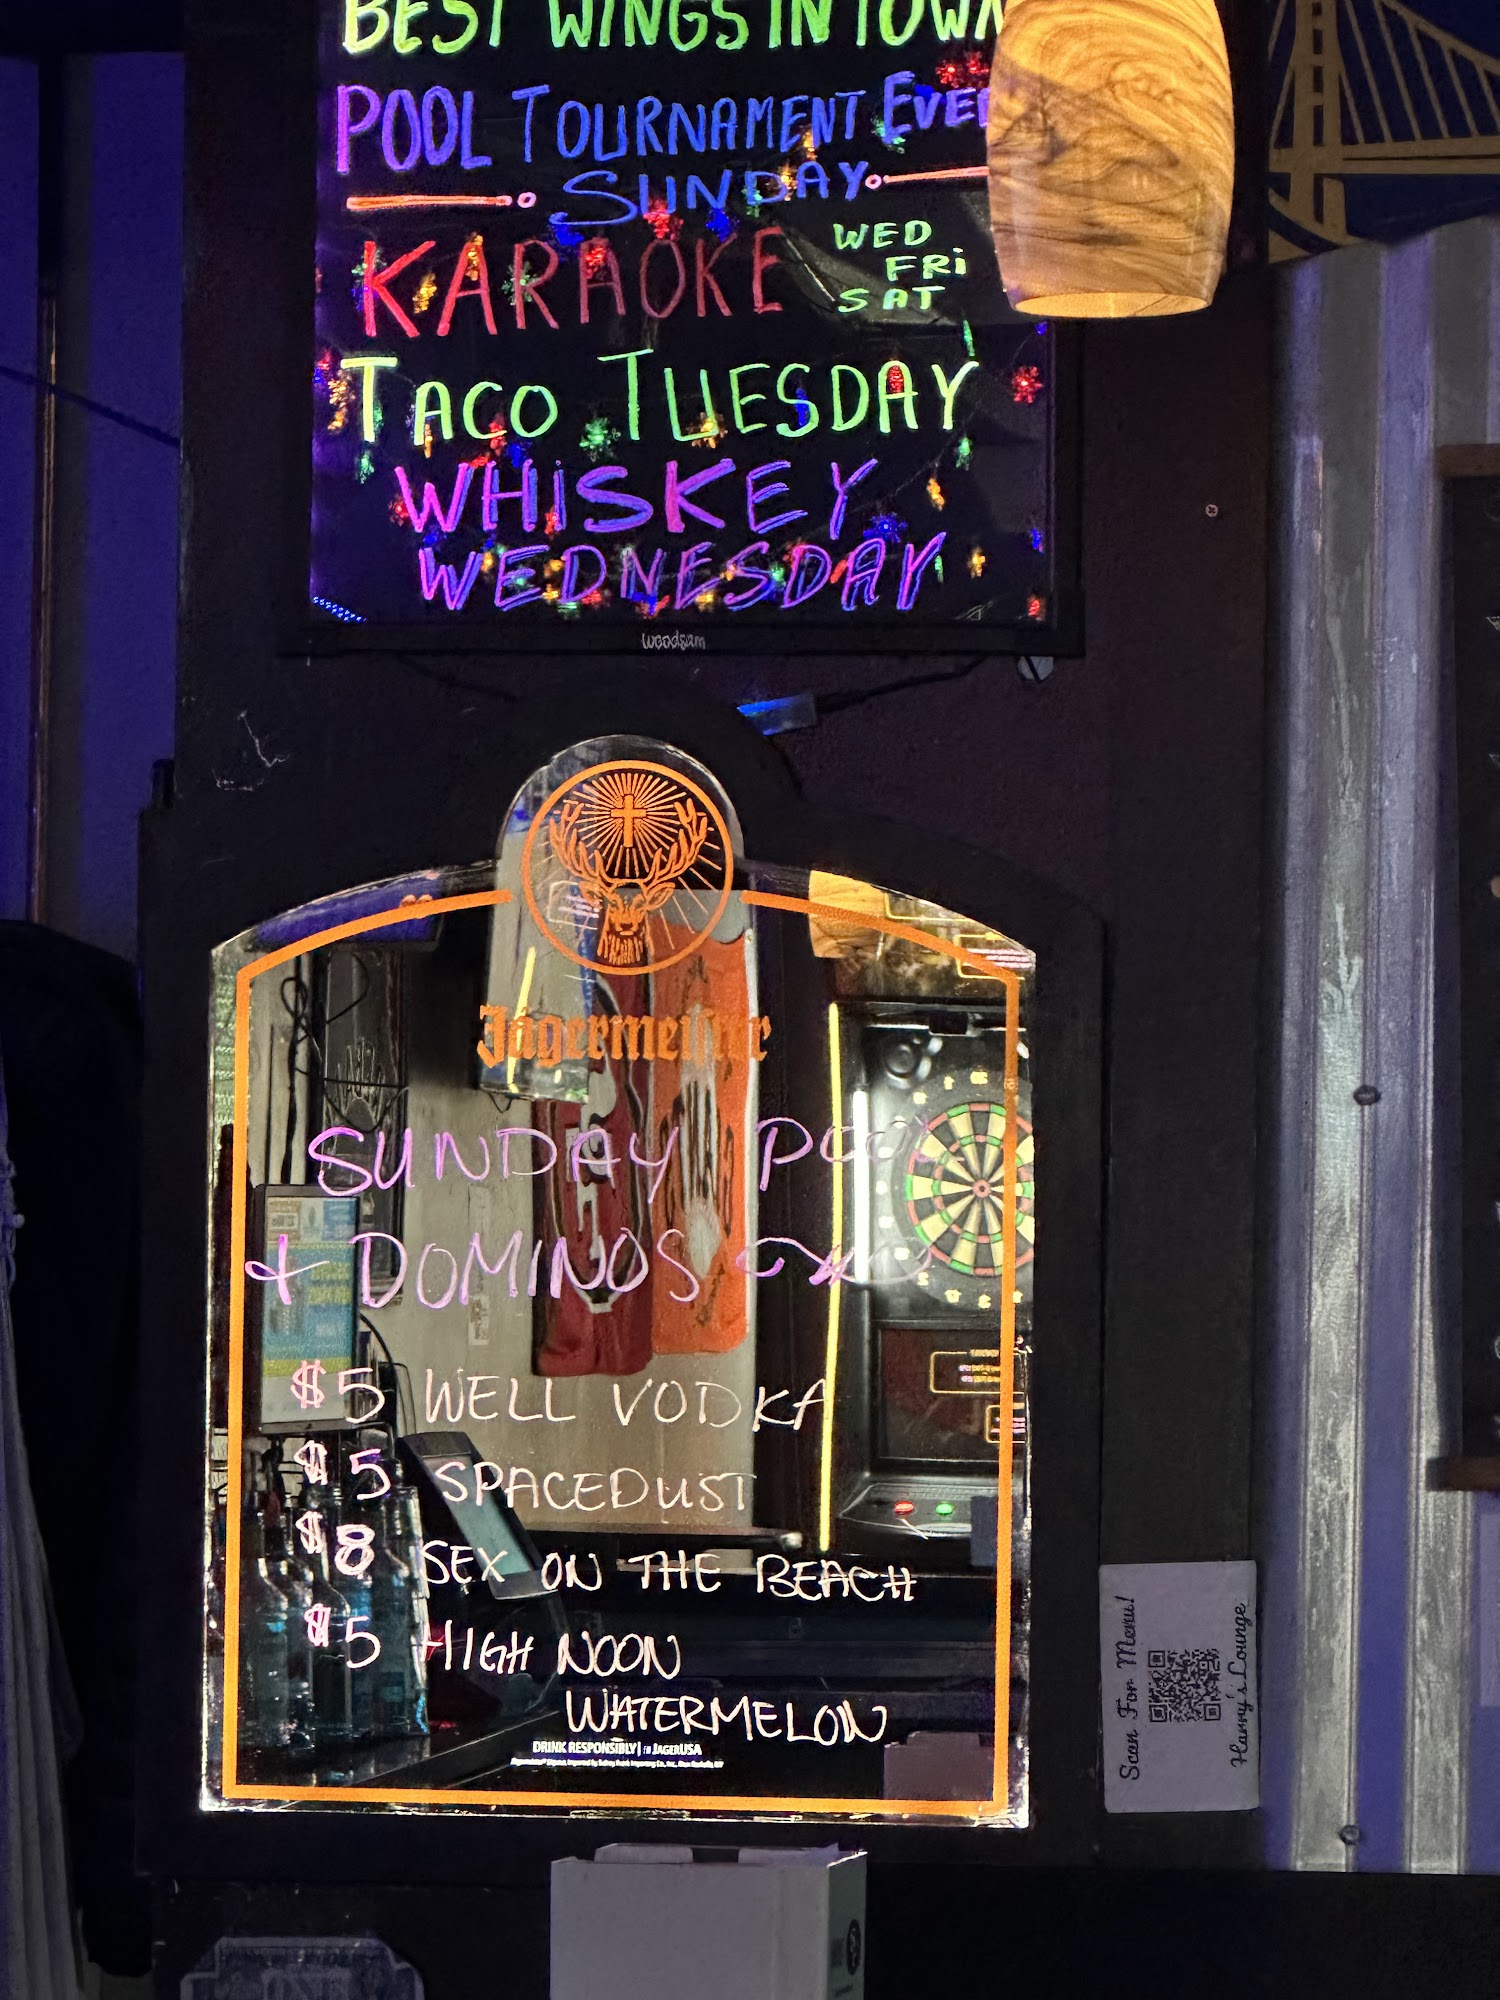 BEST WINGS IN TOWN
POOL TOURNAMENT EVE
SUNDAY
KARAOKE WED
FRi
SAT
TACO TUESDAY
WHiSKEY
WEDNESDAY
woodsam
Jägermeister
SUNDAY POOL
+ DOMINOS
$5 WELL VODKA
$5 SPACEDUST
$8 SEX ON THE BEACH
$5 HIGH NOON
WATERMELON
DRINK RESPONSIBLY | JAGERUSA
Scan For Menu!
Harry's Lounge